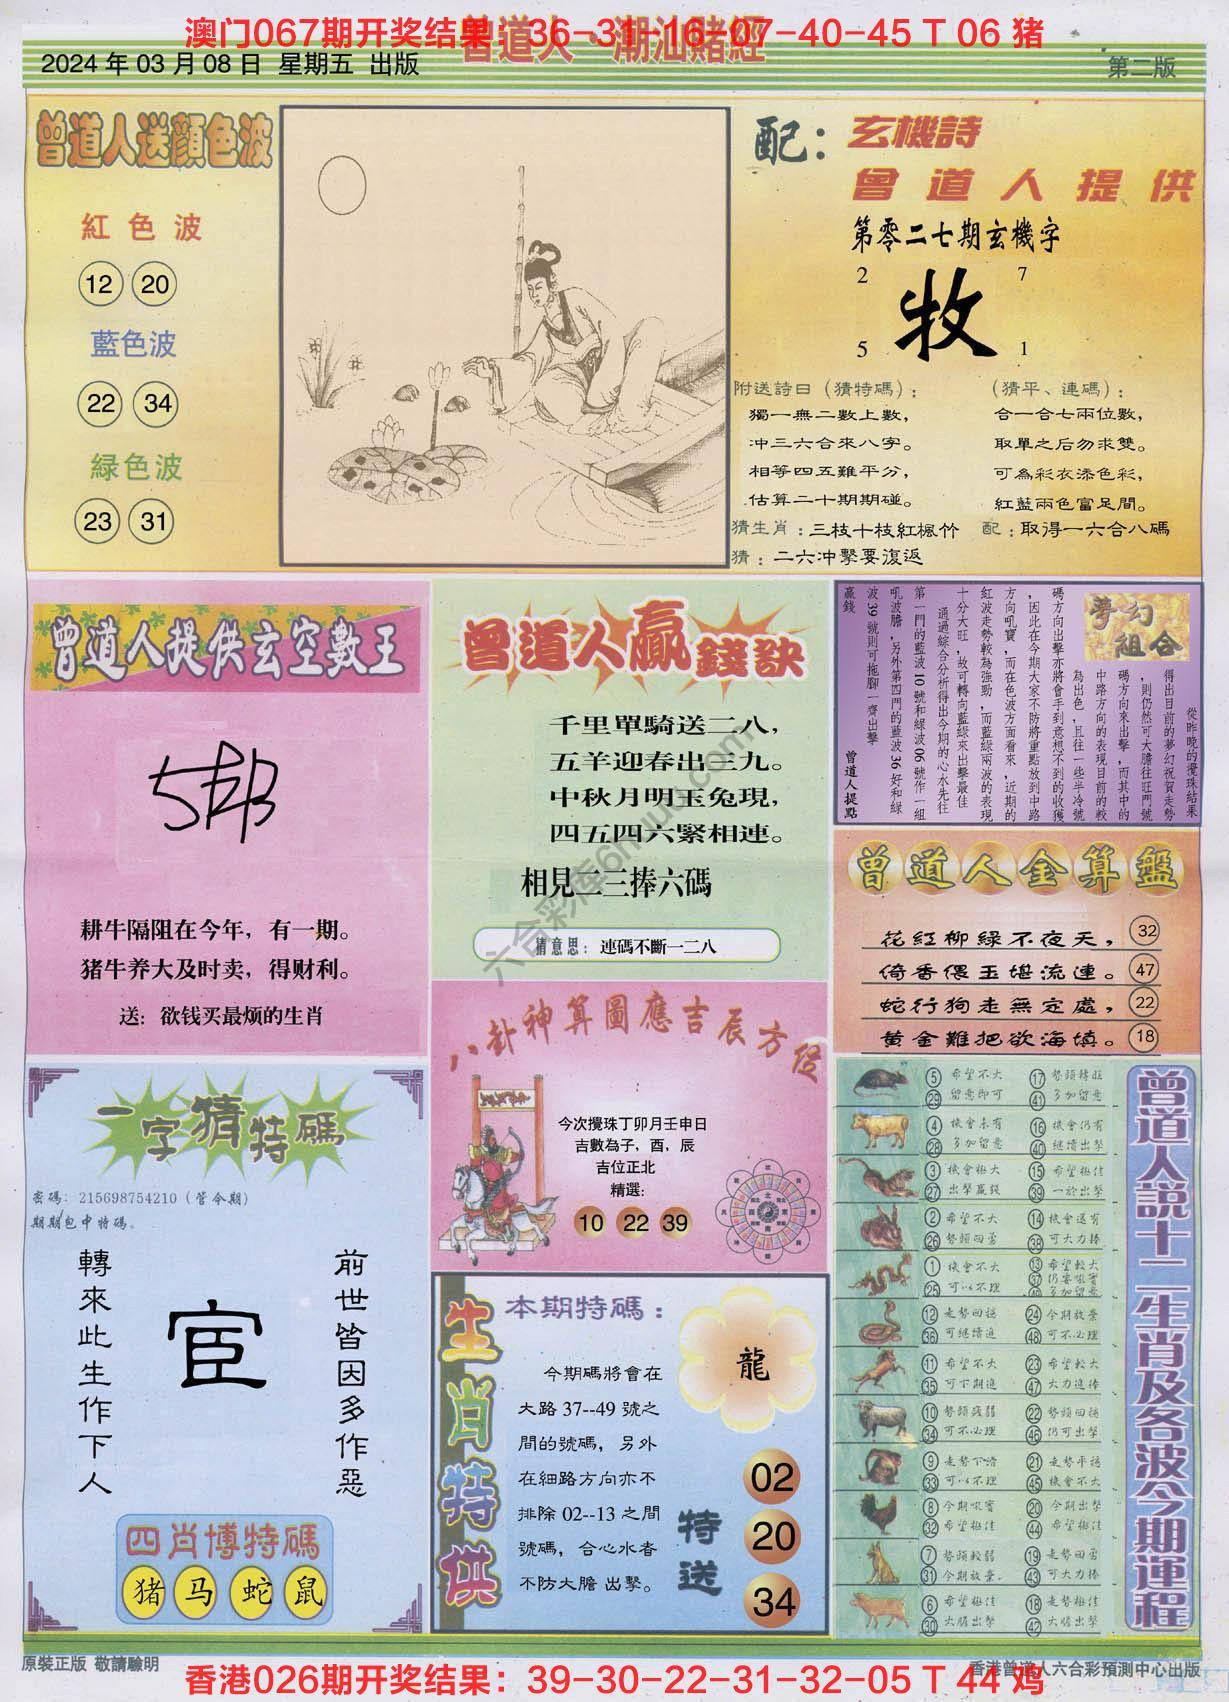 澳门067期开奖结果：36-31-16-07-40-45 T 06 猪
曾道人·潮汕賭經
2024 年 03 月 08 日 星期五 出版
第二版
曾道人送顔色波
紅色波
12 20
藍色波
22 34
緑色波
23 31
配：
玄機詩
曾道人提供
第零二七期玄機字
2 7
牧
5 1
附送詩曰（猜特碼）：
獨一無二數上數，
冲三六合來八字。
相等四五難平分，
估算二十期期碰。
（猜平、連碼）：
合一合七兩位數，
取單之后勿求雙。
可為彩衣添色彩，
紅藍兩色富足間。
猜生肖：三枝十枝紅楓竹
配：取得一六合八碼
猜：二六冲擊要復返
曾道人提供玄空數王
耕牛隔阻在今年，有一期。
猪牛养大及时卖，得财利。
送：欲钱买最烦的生肖
曾道人贏錢訣
千里單騎送二八，
五羊迎春出三九。
中秋月明玉兔現，
四五四六緊相連。
相見二三捧六碼
猜意思：連碼不斷一二八
六合彩库6huu.com
夢幻組合
從昨晚的攪珠結果
得出目前的夢幻祝賀走勢
，則仍然可大膽往旺門號
碼方向來出擊，而其中的
中路方向的表現目前的較
為出色，且往一些半冷號
碼方向出擊亦將會手到意想不到的收獲
，因此在今期大家不防將重點放到中路
方向吼寶，而在色波方面看來，近期的
紅波走勢較為強勁，而藍綠兩波的表現
十分大旺，故可轉向藍綠來出擊最佳
通過綜合分析得出今期的心水先往
第一門的藍波 10 號和綠波 06 號作一組
吼波膽，另外第四門的藍波 36 好和綠
波 39 號則可拖腳一齊出擊
贏錢
曾道人提點
曾道人金算盤
花紅柳綠不夜天， 32
倚香偎玉堪流連。 47
蛇行狗走無定處， 22
黄金難把欲海填。 18
八卦神算圖應吉辰方位
今次攪珠丁卯月壬申日
吉數為子，酉，辰
吉位正北
精選:
10 22 39
一字猜特碼
密碼：215698754210（管令期）
期期包中特碼。
前世皆因多作惡
宦
轉來此生作下人
四肖博特碼
猪 马 蛇 鼠
生肖特供
本期特碼：
龍
今期碼將會在
大路 37--49 號之
間的號碼，另外
在細路方向亦不
排除 02--13 之間
號碼，合心水者
不防大膽 出擊。
特送
02
20
34
曾道人説十二生肖及各波今期運程
5 希望不大 17 勢頭轉旺
29 留意即可 41 多加留意
4 機會未有 16 機會仍有
28 多加留意 40 繼續出擊
3 機會極大 15 希望極佳
27 出擊贏錢 39 一於出擊
2 希望不大 14 機會還有
26 勢頭回落 38 可大力捧
1 機會不大 13 希望較大
25 可以不理 37
12 走勢回穩 24 今期放棄
36 可繼續追 48 可不必理
11 希望不大 23 希望較大
35 可下期追 47 大力追捧
10 勢頭疲弱 22 勢頭回穩
34 可不必理 46 仍可出擊
9 走勢下滑 21 走勢平穩
33 可以不理 45 機會不大
8 今期吼寶 20 今期出擊
32 希望極佳 44 希望極佳
7 勢頭較弱 19 走勢回勇
31 今期放棄. 43 可大力捧
6 希望極佳 18 走勢極佳
30 大膽出擊 42 大膽出擊
原裝正版 敬請驗明
香港曾道人六合彩預測中心出版
香港026期开奖结果：39-30-22-31-32-05 T 44 鸡